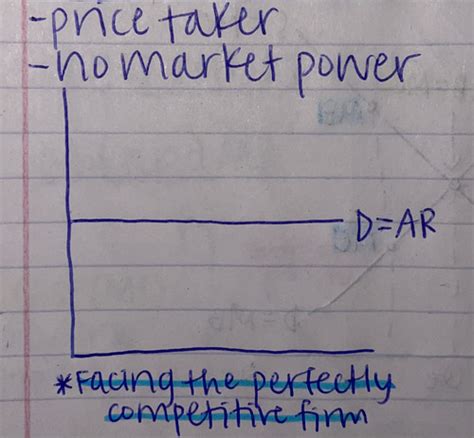 -price taker
-no market power
D=AR
*Facing the perfectly
competitive firm